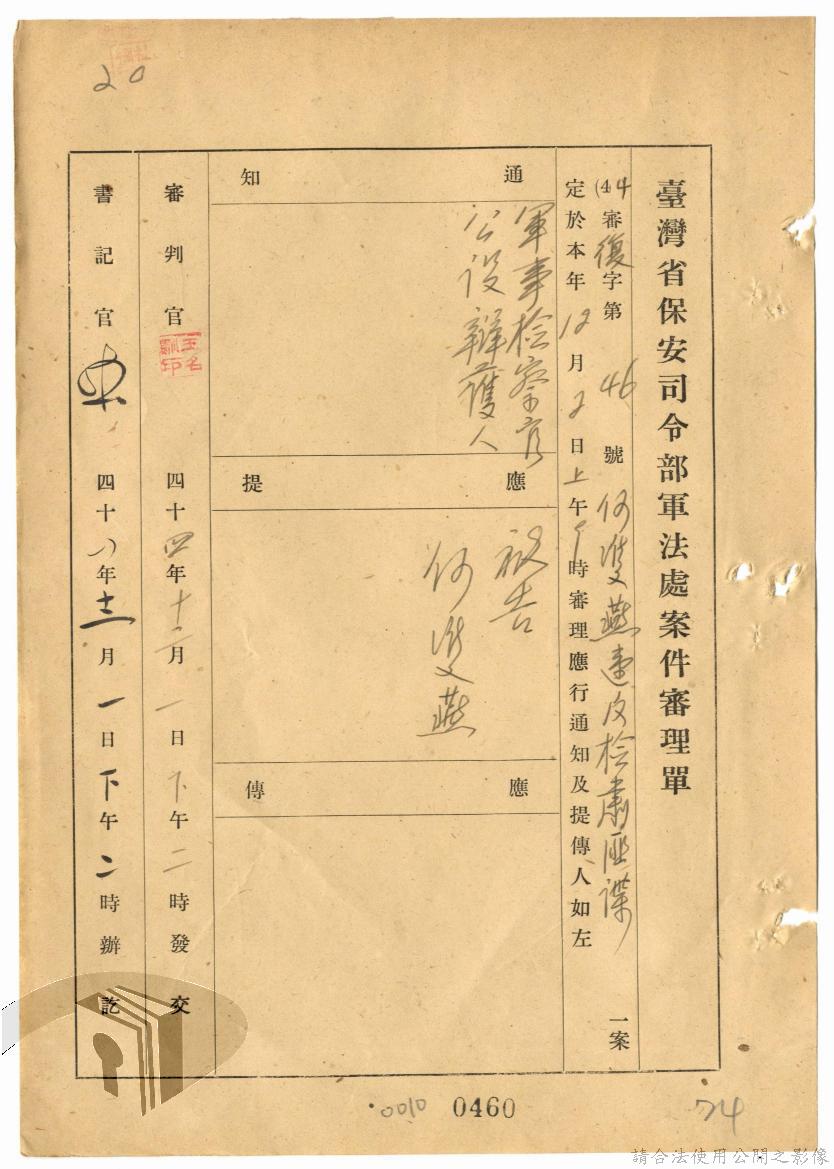 20
臺灣省保安司令部軍法處案件審理單
(44審復字第46號何雙燕違反檢肅匪諜一案
定於本年12月2日上午9時審理應行通知及提傳人如左
通知
軍事檢察官
公設辯護人
應提
被告
何雙燕
應傳
審判官 四十四年十二月一日下午二時發交
書記官 四十八年十二月一日下午二時辦訖
0010 0460
74
請合法使用公開之影像